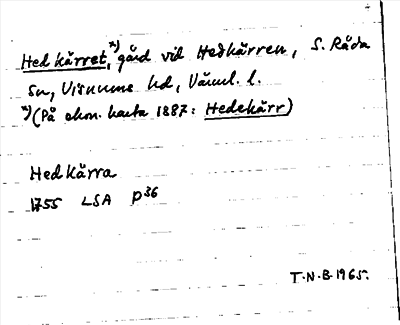 Hedkärret,ˣ⁾ gård vid Hedkärren, S. Råda
sn, Visnums hd, Värml. l.
ˣ⁾(På ekon. karta 1887: Hedekärr)
Hedkärra
1755 LSA P36
T.N.B. 1965.